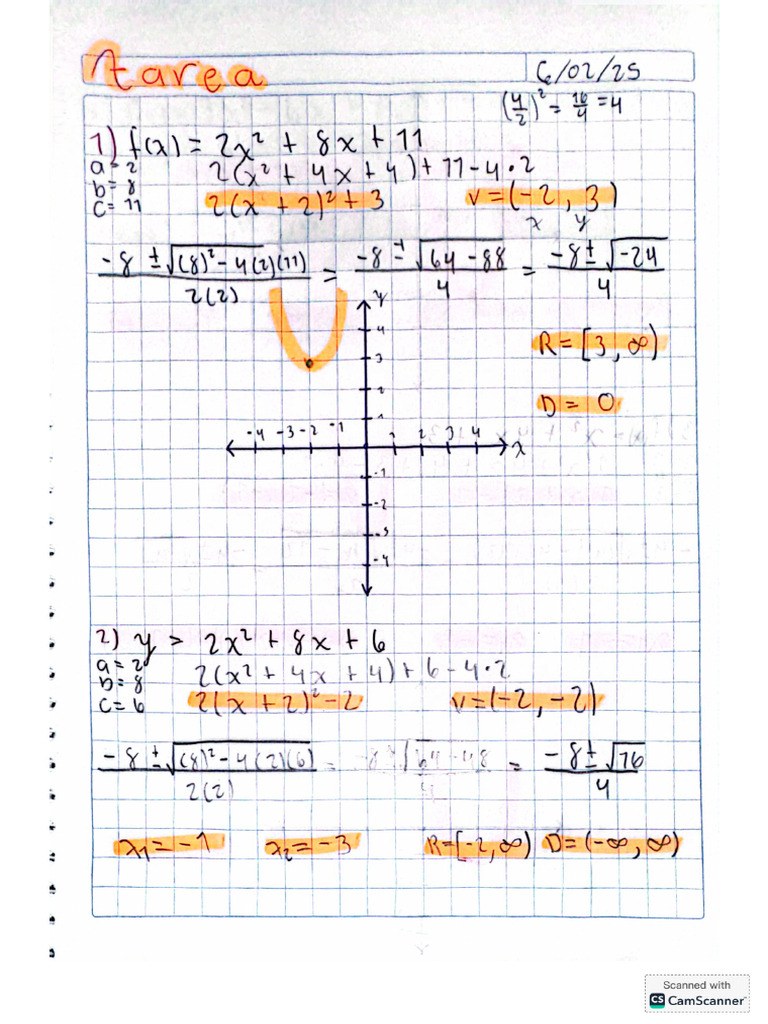 tarea
6/02/25
(4/2)² = 16/4 = 4
1) f(x) = 2x² + 8x + 11
a = 2
2(x² + 4x + 4) + 11 - 4 • 2
b = 8
c = 11
2(x + 2)² + 3
v = (-2, 3)
x y
-8 ± √(8)² - 4(2)(11) / 2(2) = -8 ± √64 - 88 / 4 = -8 ± √-24 / 4
y
4
3
2
1
R = [3, ∞)
D = 0
-4 -3 -2 -1 1 2 3 4 x
-1
-2
-3
-4
2) y > 2x² + 8x + 6
a = 2
2(x² + 4x + 4) + 6 - 4 • 2
b = 8
c = 6
2(x + 2)² - 2
v = (-2, -2)
-8 ± √(8)² - 4(2)(6) / 2(2) = -8 ± √64 - 48 / 4 = -8 ± √16 / 4
x₁ = -1 x₂ = -3 R = [-2, ∞) D = (-∞, ∞)
Scanned with
CS CamScanner